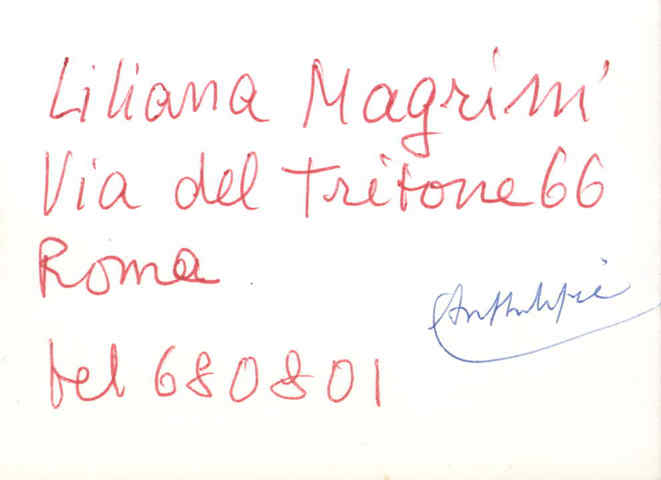 Liliana Magrini
Via del Tritone 66
Roma
tel 680801